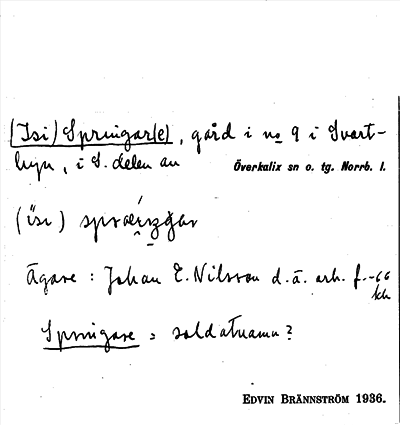 (Isi) Springar(e), gård i no 9 i Svart-
byn, i S. delen av Överkalix sn o. tg. Norrb. l.
(isi)
Ägare : Johan E. Nilsson d.ä. arb. f. -66
Springare = soldatnamn?
EDVIN BRÄNNSTRÖM 1936.